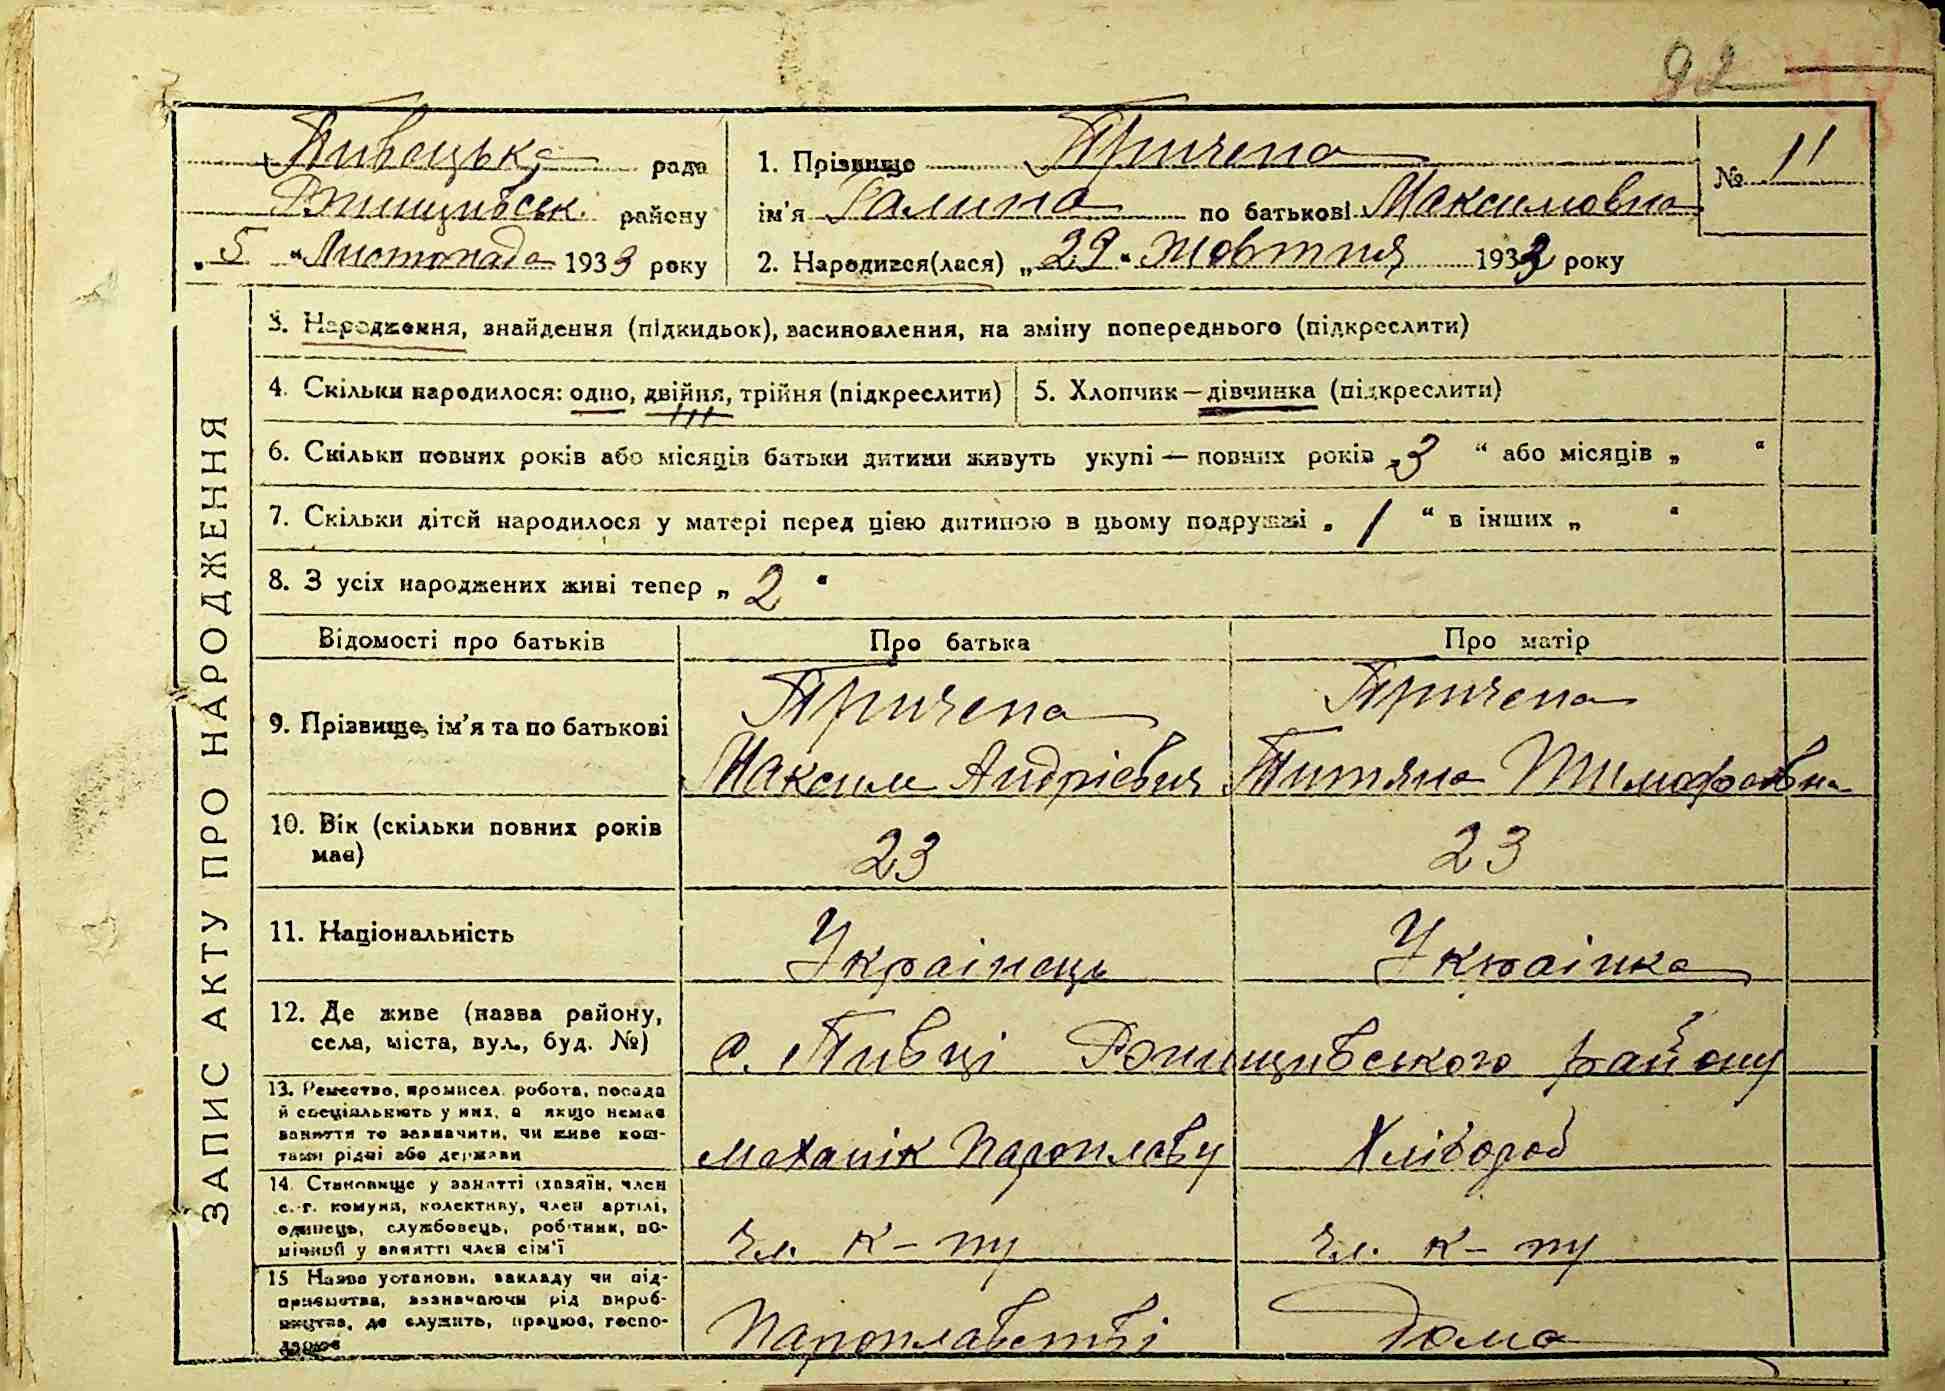 92
Пивецька рада
Ржищивськ. району
„ 5 “ Листопада 1933 року
1. Прізвище Причепа
ім'я Галина по батькові Максимовна
2. Народився(лася) „ 29 “ Жовтня 1933 року
№ 11
ЗАПИС АКТУ ПРО НАРОДЖЕННЯ
3. Народження, знайдення (підкидьок), васиновлення, на зміну попереднього (підкреслити)
4. Скільки народилося: одно, двійня, трійня (підкреслити)
5. Хлопчик — дівчинка (підкреслити)
6. Скільки повних років або місяців батьки дитини живуть укупі — повних років „ 3 “ або місяців „ “
7. Скільки дітей народилося у матері перед цією дитиною в цьому подружжі „ 1 “ в інших „ “
8. З усіх народжених живі тепер „ 2 “
Відомості про батьків
Про батька
Про матір
9. Прізвище, ім'я та по батькові
Причепа
Максим Андрієвич
Причепа
Титяна Тимофеевна
10. Вік (скільки повних років
має)
23
23
11. Національність
Украінець
Украінка
12. Де живе (назва району,
села, міста, вул., буд. №)
с. Пивці Ржищивського району
13. Ремество, промисел, робота, посада
й спеціяльність у них, а якщо немає
заняття то зазначити, чи живе кош-
тами рідні або держави
механік пароплаву
Хлібороб
14. Становище у занятті (хазяїн, член
с.-г. комуни, колективу, член артілі,
одинець, службовець, робітник, по-
мічний у занятті член сім'ї
Чл. к-пу
Чл. к-пу
15 Назва установи, закладу чи під-
приємства, зазначаючи рід вироб-
ництва, де служить, працює, госпо-
дарює
Пароплавстві
Дома